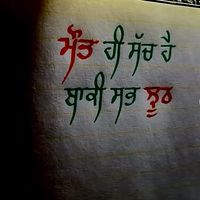 ਮੌਤ ਹੀ ਸੱਚ ਹੈ
ਬਾਕੀ ਸਭ ਝੂਠ